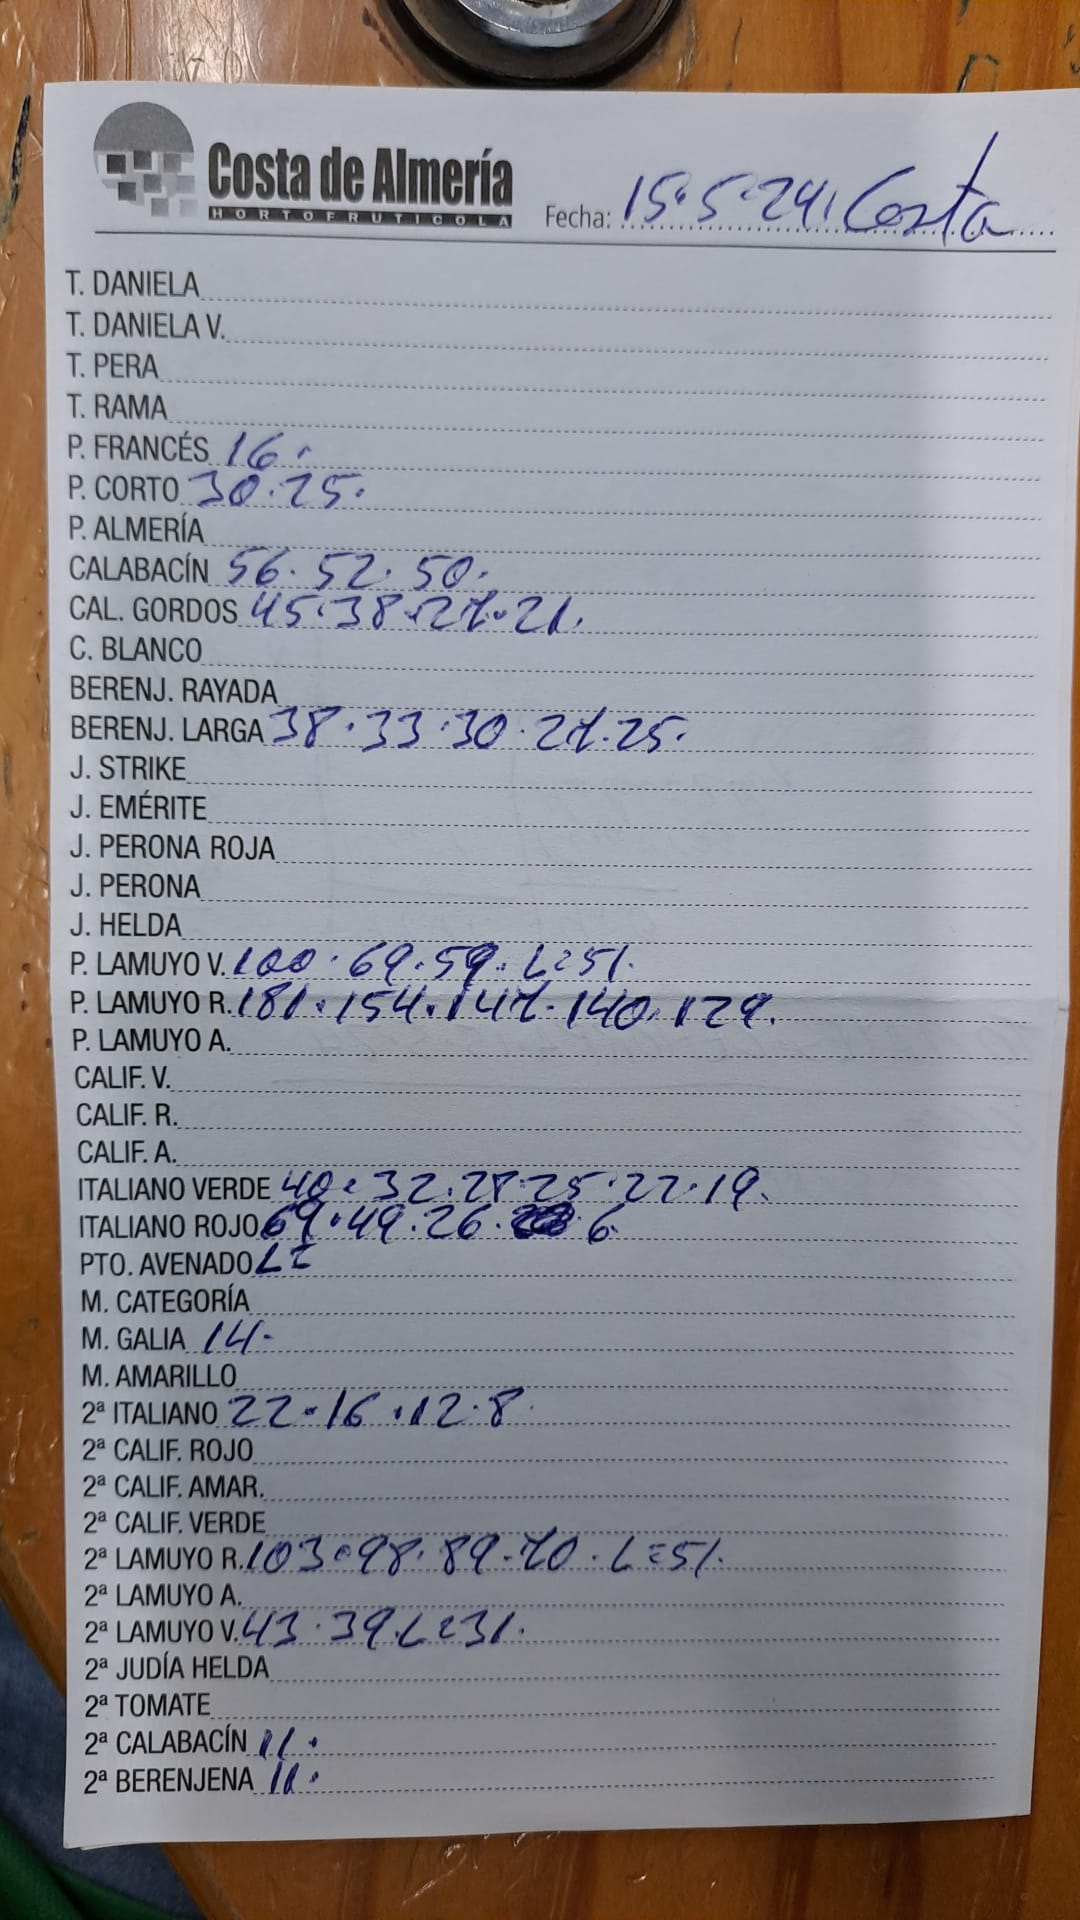 Costa de Almería
HORTOFRUTICOLA
Fecha: 15.5.24. Costa
T. DANIELA
T. DANIELA V.
T. PERA
T. RAMA
P. FRANCÉS 16.
P. CORTO 30.25.
P. ALMERÍA
CALABACÍN 56. 52. 50.
CAL. GORDOS 45.38.27.21.
C. BLANCO
BERENJ. RAYADA
BERENJ. LARGA 38.33.30.27.25.
J. STRIKE
J. EMÉRITE
J. PERONA ROJA
J. PERONA
J. HELDA
P. LAMUYO V. 100.69.59. L=51.
P. LAMUYO R. 181.154.147.140.129.
P. LAMUYO A.
CALIF. V.
CALIF. R.
CALIF. A.
ITALIANO VERDE 40.32.28.25.22.19.
ITALIANO ROJO 69.49.26. 6.
PTO. AVENADO
M. CATEGORÍA
M. GALIA 14.
M. AMARILLO
2ª ITALIANO 22.16.12.8.
2ª CALIF. ROJO
2ª CALIF. AMAR.
2ª CALIF. VERDE
2ª LAMUYO R. 103.98.89.70. L=51.
2ª LAMUYO A.
2ª LAMUYO V. 43.39.L=31.
2ª JUDÍA HELDA
2ª TOMATE
2ª CALABACÍN 11.
2ª BERENJENA 11.